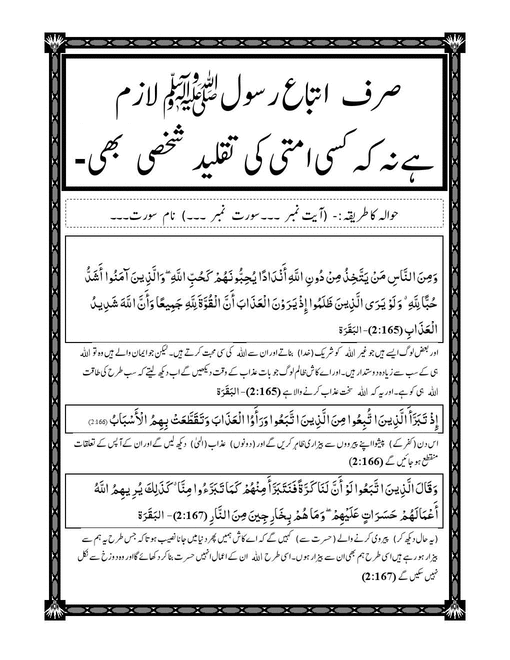 صرف اتباع رسول ﷺ لازم
ہے نہ کہ کسی امتی کی تقلید شخصی بھی-
حوالہ کا طریقہ :- (آیت نمبر ---سورت نمبر ---) نام سورت---
وَمِنَ النَّاسِ مَنْ يَتَّخِذُ مِنْ دُونِ اللَّهِ أَنْدَادًا يُحِبُّونَهُمْ كَحُبِّ اللَّهِ ۖ وَالَّذِينَ آمَنُوا أَشَدُّ
حُبًّا لِلَّهِ ۗ وَلَوْ يَرَى الَّذِينَ ظَلَمُوا إِذْ يَرَوْنَ الْعَذَابَ أَنَّ الْقُوَّةَ لِلَّهِ جَمِيعًا وَأَنَّ اللَّهَ شَدِيدُ
الْعَذَابِ (2:165)- البَقَرَة
اور بعض لوگ ایسے ہیں جو غیر اللہ کو شریک (خدا) بناتے اور ان سے اللہ کی سی محبت کرتے ہیں۔ لیکن جو ایمان والے ہیں وہ تو اللہ
ہی کے سب سے زیادہ دوستدار ہیں۔ اور اے کاش ظالم لوگ جو بات عذاب کے وقت دیکھیں گے اب دیکھ لیتے کہ سب طرح کی طاقت
اللہ ہی کو ہے۔ اور یہ کہ اللہ سخت عذاب کرنے والا ہے (2:165)- البَقَرَة
إِذْ تَبَرَّأَ الَّذِينَ اتُّبِعُوا مِنَ الَّذِينَ اتَّبَعُوا وَرَأَوُا الْعَذَابَ وَتَقَطَّعَتْ بِهِمُ الْأَسْبَابُ (2:166)
اس دن (کفر کے) پیشوا اپنے پیرووں سے بیزاری ظاہر کریں گے اور (دونوں) عذاب (الہیٰ) دیکھ لیں گے اور ان کے آپس کے تعلقات
منقطع ہو جائیں گے (2:166)
وَقَالَ الَّذِينَ اتَّبَعُوا لَوْ أَنَّ لَنَا كَرَّةً فَنَتَبَرَّأَ مِنْهُمْ كَمَا تَبَرَّءُوا مِنَّا ۗ كَذَٰلِكَ يُرِيهِمُ اللَّهُ
أَعْمَالَهُمْ حَسَرَاتٍ عَلَيْهِمْ ۖ وَمَا هُمْ بِخَارِجِينَ مِنَ النَّارِ (2:167) - البَقَرَة
(یہ حال دیکھ کر) پیروی کرنے والے (حسرت سے) کہیں گے کہ اے کاش ہمیں پھر دنیا میں جانا نصیب ہوتا کہ جس طرح یہ ہم سے
بیزار ہو رہے ہیں اسی طرح ہم بھی ان سے بیزار ہوں۔ اسی طرح اللہ ان کے اعمال انہیں حسرت بنا کر دکھائے گا اور وہ دوزخ سے نکل
نہیں سکیں گے (2:167)